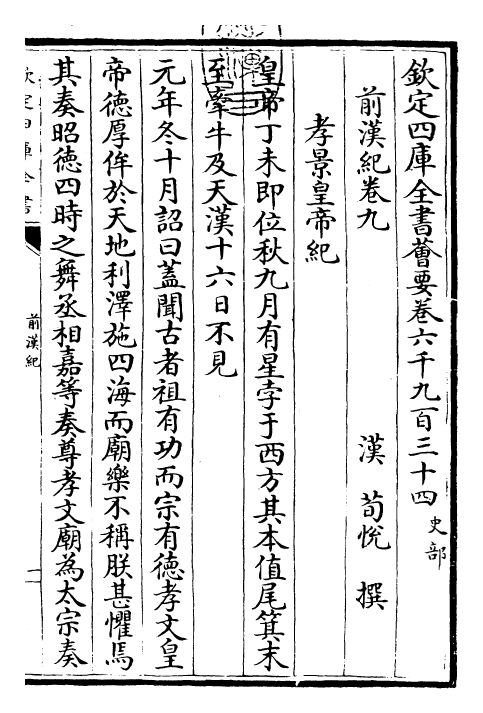 欽定四庫全書薈要卷六千九百三十四 史部
前漢紀卷九 漢 荀悅 撰
孝景皇帝紀
皇帝丁未即位秋九月有星孛于西方其本值尾箕末
至牽牛及天漢十六日不見
元年冬十月詔曰蓋聞古者祖有功而宗有徳孝文皇
帝徳厚侔於天地利澤施四海而廟樂不稱朕甚懼焉
其奏昭徳四時之舞丞相嘉等奏尊孝文廟為太宗奏
欽定四庫全書
前漢紀
一